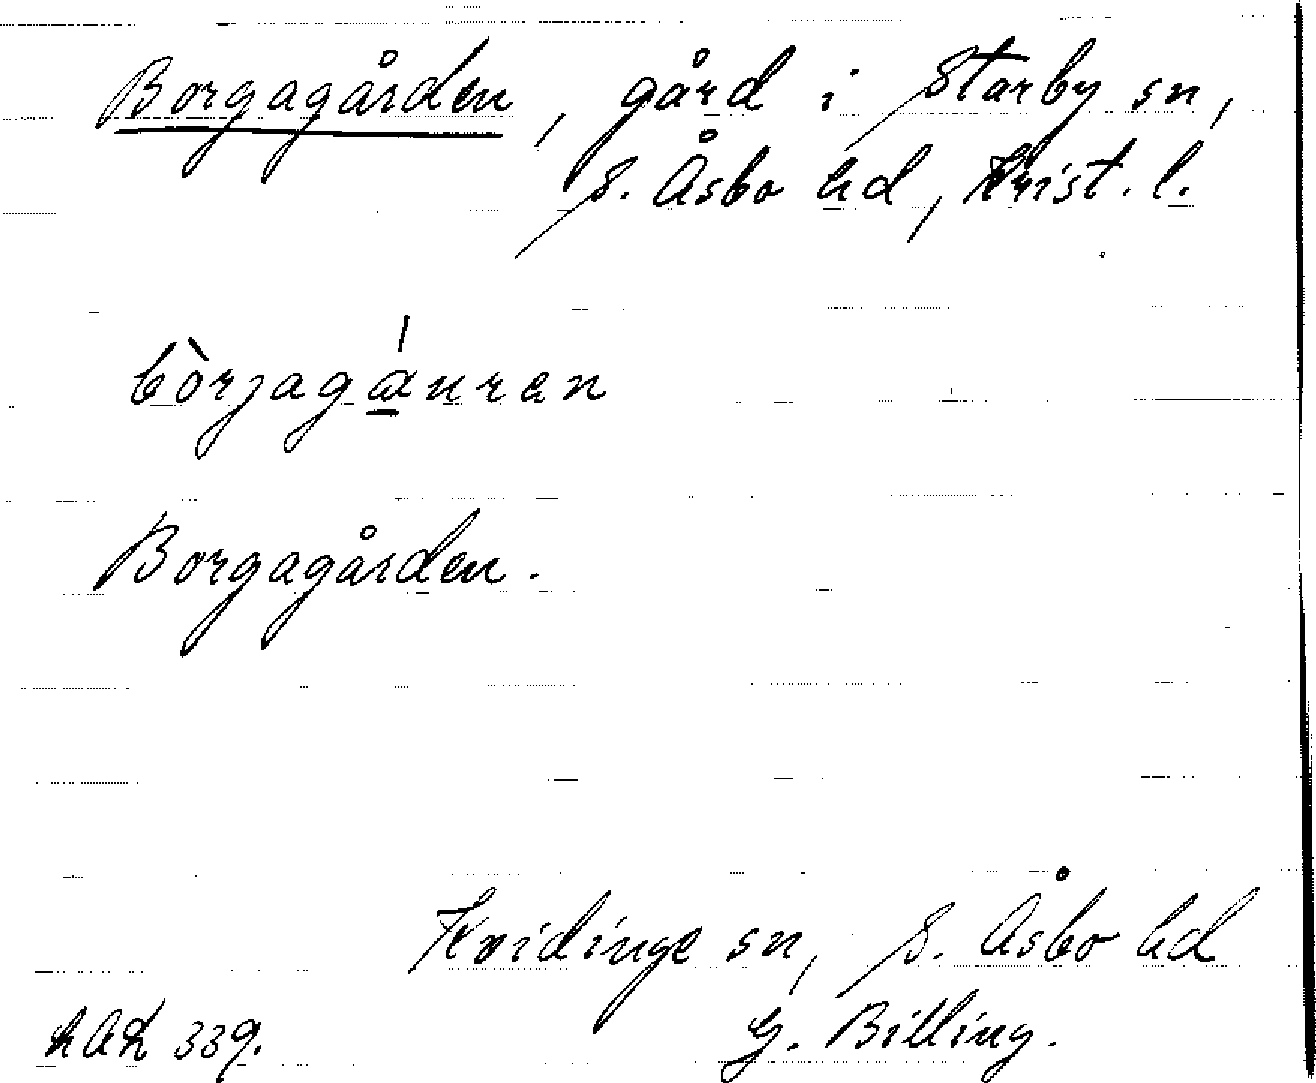 Borgagården, gård i Starby sn,
S. Åsbo hd, Krist. l.
bòrjagáuran
Borgagården.
Kvidinge sn, S. Åsbo hd
G. Billing.